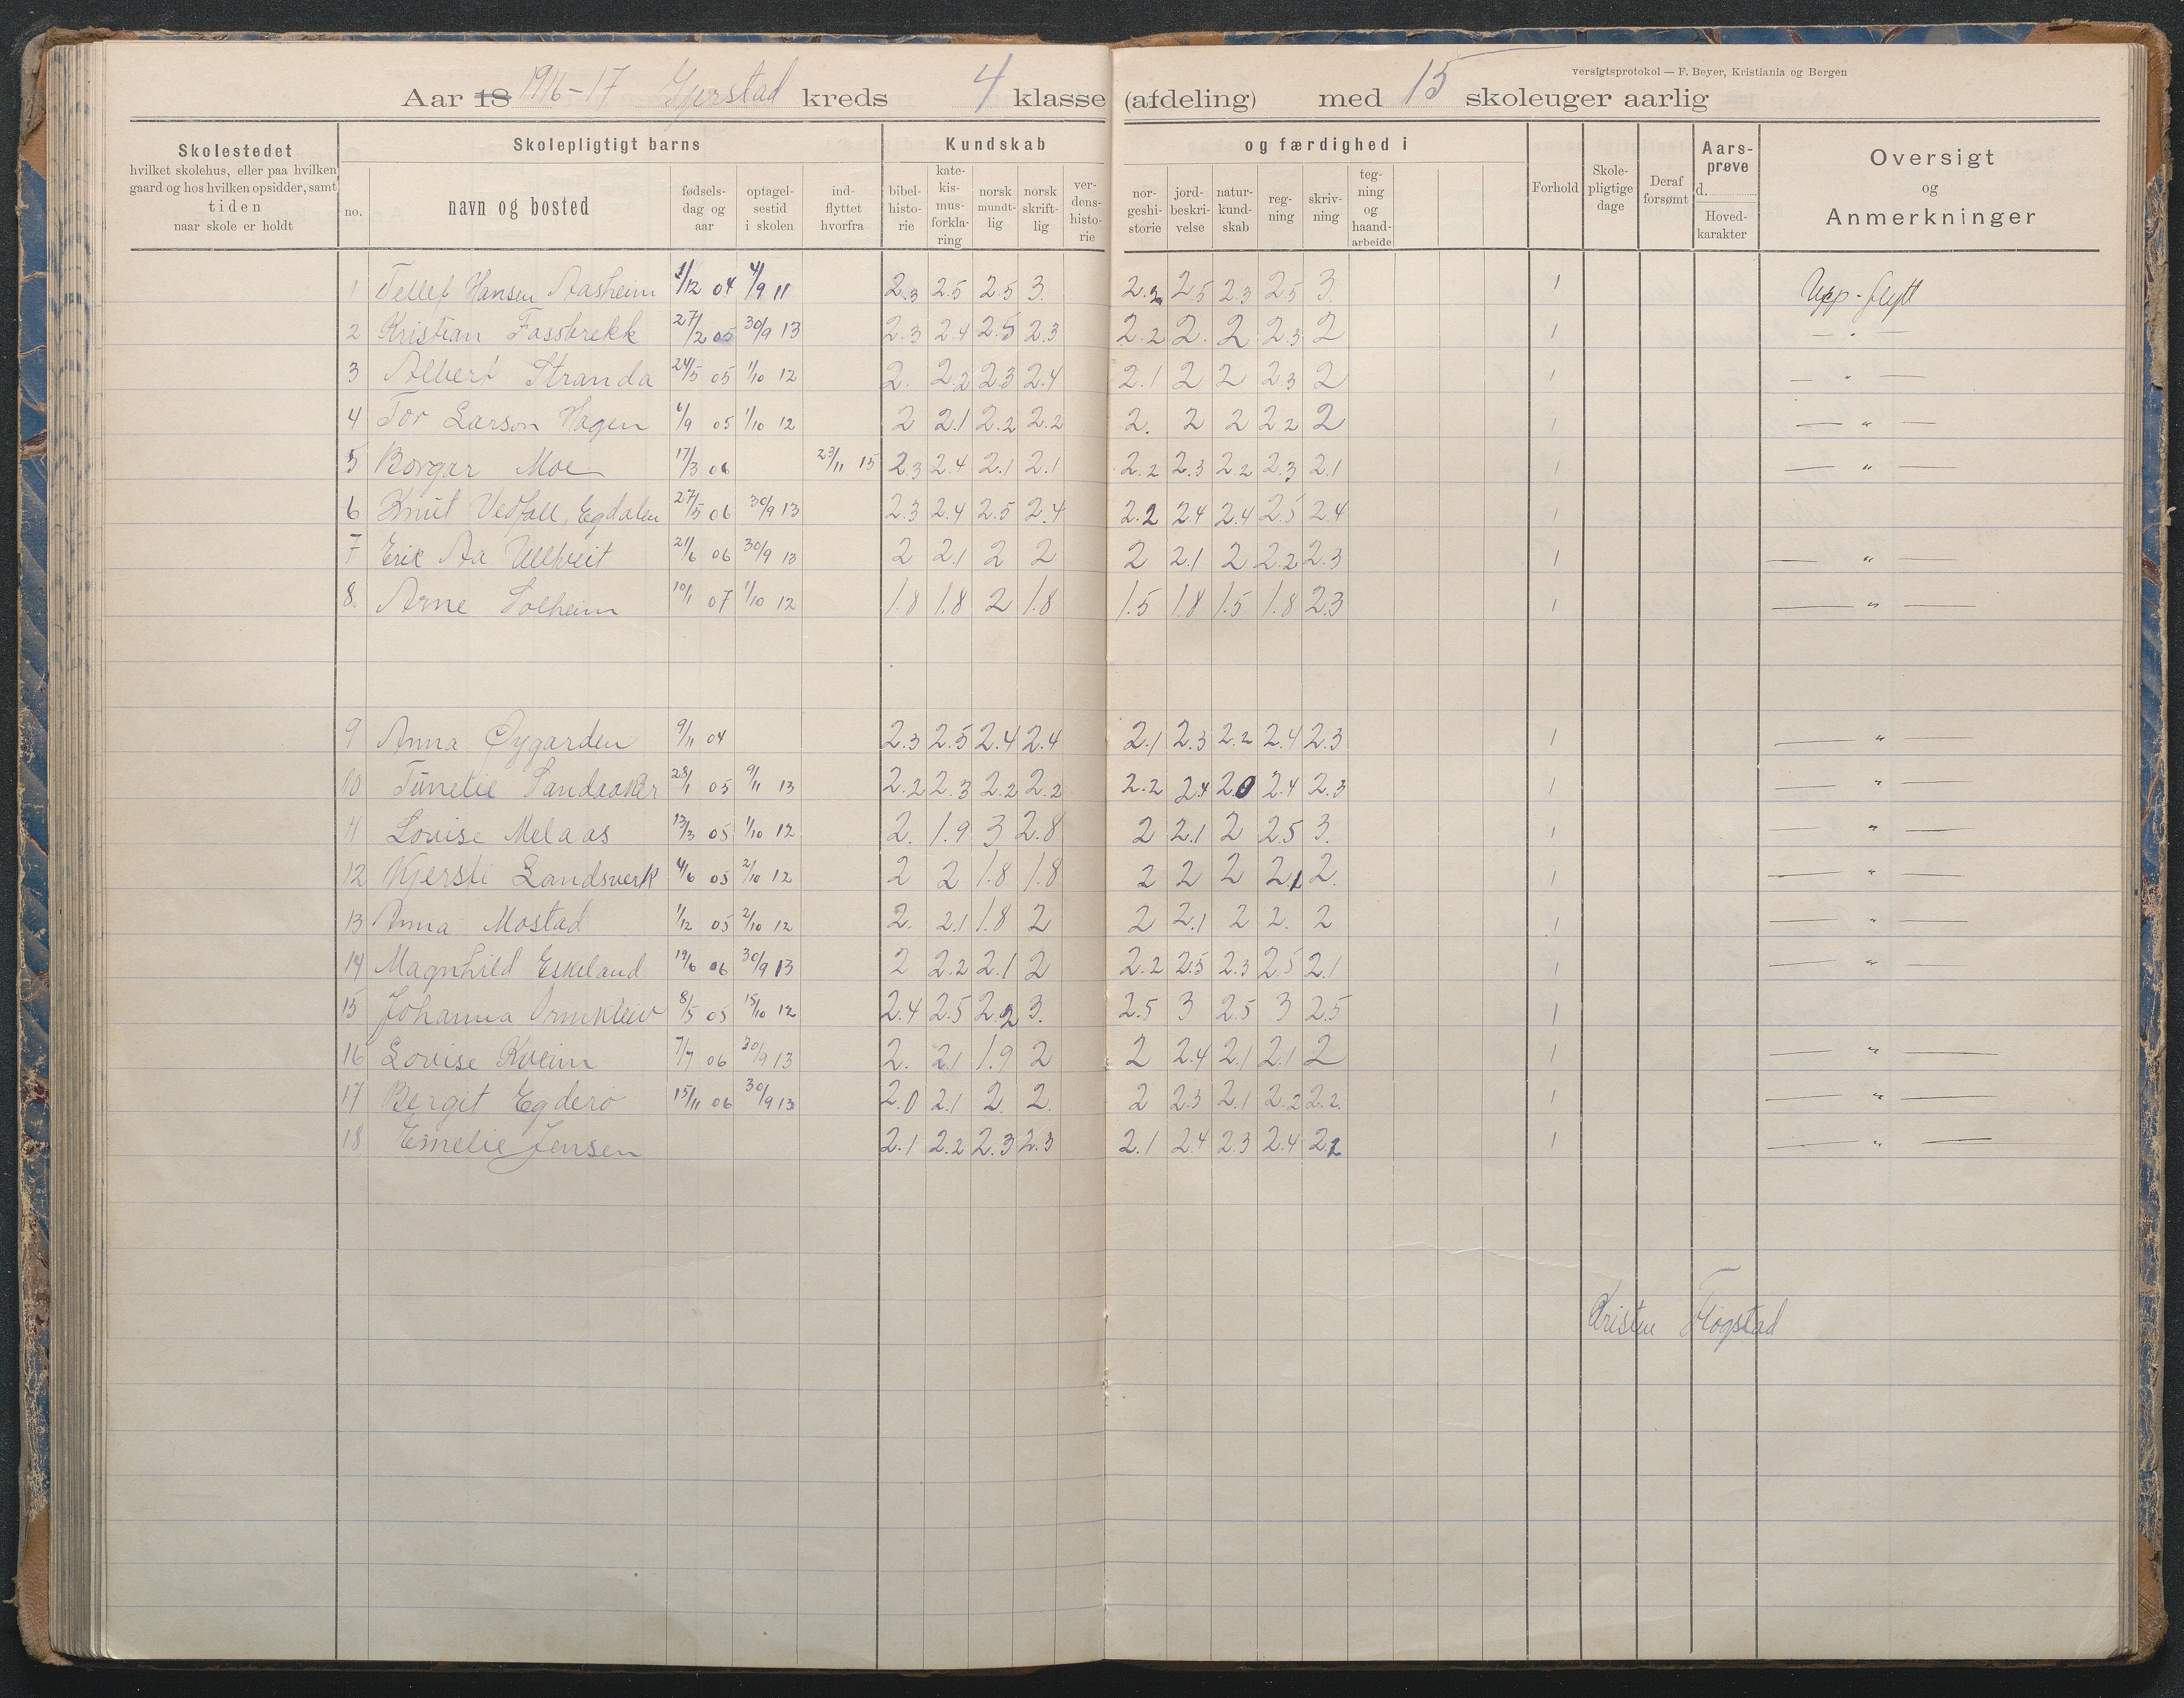 versigtsprotokol — F. Beyer, Kristiania og Bergen
Aar 18 1916-17 Gjerstad kreds 4 klasse (afdeling) med 15 skoleuger aarlig
Skolestedet
hvilket skolehus, eller paa hvilken
gaard og hos hvilken opsidder, samt
tiden
naar skole er holdt
Skolepligtigt barns
no.
navn og bosted
fødsels-
dag og
aar
optagel-
sestid
i skolen
ind-
flyttet
hvorfra
Kundskab
bibel-
histo-
rie
kate-
kis-
mus-
forkla-
ring
norsk
mundt-
lig
norsk
skrift-
lig
ver-
dens-
histo-
rie
og færdighed i
nor-
geshi-
storie
jord-
beskri-
velse
natur-
kund-
skab
reg-
ning
skriv-
ning
teg-
ning
og
haand-
arbeide
Forhold
Skole-
pligtige
dage
Deraf
forsømt
Aars-
prøve
d.
Hoved-
karakter
Oversigt
og
Anmerkninger
1 Tellef Hansen Aasheim 1/12 04 4/9 11 2.3 2.5 2.5 3. 2.2 2.5 2.3 2.5 3. 1 Upp-flytt
2 Kristian Fossbrekk 27/2 05 30/9 13 2.3 2.4 2.5 2.3 2.2 2. 2 2.3 2 1 — " —
3 Albert Stranda 24/5 05 1/10 12 2. 2.2 2.3 2.4 2.1 2 2 2.3 2 1 — " —
4 Tor Larson Hagen 6/9 05 1/10 12 2 2.1 2.2 2.2 2. 2 2 2.2 2 1 — " —
5 Borgar Moe 17/3 06 23/11 15 2.3 2.4 2.1 2.1 2.2 2.3 2.2 2.3 2.1 1 — " —
6 Knut Vedfall, Egdalen 27/5 06 30/9 13 2.3 2.4 2.5 2.4 2.2 2.4 2.4 2.5 2.4 1
7 Eric Aa Ulltveit 21/6 06 30/9 13 2 2.1 2 2 2 2.1 2 2.2 2.3 1 — " —
8. Arne Solheim 10/1 07 1/10 12 1.8 1.8 2 1.8 1.5 1.8 1.5 1.8 2.3 1 — " —
9 Anna Øygarden 9/11 04 2.3 2.5 2.4 2.4 2.1 2.3 2.2 2.4 2.3 1 — " —
10 Tunelie Sandaaker 28/1 05 9/11 13 2.2 2.3 2.2 2.2 2.2 2.4 2.0 2.4 2.3 1 — " —
11 Lovise Melaas 13/3 05 1/10 12 2. 1.9 3 2.8 2 2.1 2 2.5 3. 1 — " —
12 Kjersti Landsverk 4/6 05 2/10 12 2 2 1.8 1.8 2 2 2 2.1 2. 1 — " —
13 Anna Mostad 1/12 05 2/10 12 2. 2.1 1.8 2 2 2.1 2 2. 2 1 — " —
14 Magnhild Eskeland 19/6 06 30/9 13 2 2.2 2.1 2 2.2 2.5 2.3 2.5 2.1 1 — " —
15 Johanna Ormkleiv 8/5 05 15/10 12 2.4 2.5 2.2 3. 2.5 3 2.5 3 2.5 1
16 Lovise Kveim 7/7 06 30/9 13 2. 2.1 1.9 2 2 2.4 2.1 2.1 2 1 — " —
17 Bergit Egderø 15/11 06 30/9 13 2.0 2.1 2. 2. 2 2.3 2.1 2.2 2.2. 1 — " —
18 Emelie Jensen 2.1 2.2 2.3 2.3 2.1 2.4 2.3 2.4 2.2 1 — " —
Kristen Fløgstad